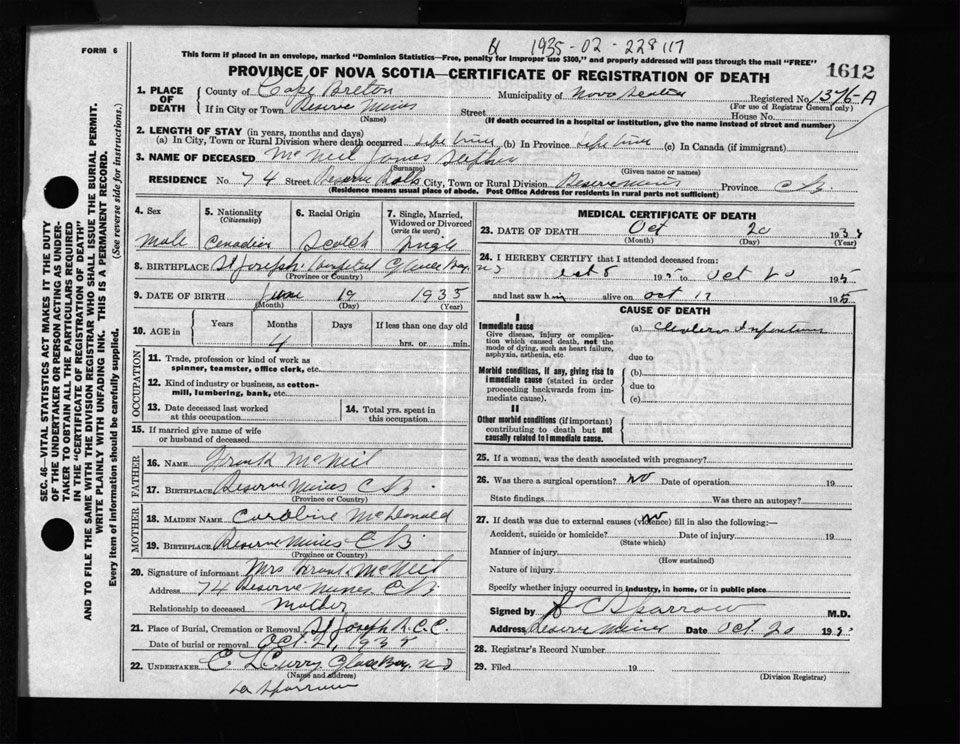 1935-02-228117
FORM 6
This form if placed in an envelope, marked "Dominion Statistics—Free, penalty for improper use $300," and properly addressed will pass through the mail "FREE"
PROVINCE OF NOVA SCOTIA—CERTIFICATE OF REGISTRATION OF DEATH
1612
1. PLACE OF DEATH
County of Cape Breton Municipality of Nova Scotia Registered No. 1376-A
(For use of Registrar General only)
If in City or Town Reserve Mines Street House No.
(Name) (If death occurred in a hospital or institution, give the name instead of street and number)
2. LENGTH OF STAY (in years, months and days)
(a) In City, Town or Rural Division where death occurred life time (b) In Province life time (c) In Canada (if immigrant)
3. NAME OF DECEASED McNeil James Stephen
(Surname) (Given name or names)
RESIDENCE No 74 Street Reserve City, Town or Rural Division Reserve Mines Province C B
(Residence means usual place of abode. Post Office Address for residents in rural parts not sufficient)
4. Sex
Male
5. Nationality (Citizenship)
Canadian
6. Racial Origin
Scotch
7. Single, Married, Widowed or Divorced (write the word)
Single
8. BIRTHPLACE St Joseph Hospital Glace Bay N S
(Province or Country)
9. DATE OF BIRTH June 19 1935
(Month) (Day) (Year)
10. AGE in Years Months Days If less than one day old
4 hrs. or min.
OCCUPATION
11. Trade, profession or kind of work as spinner, teamster, office clerk, etc.
12. Kind of industry or business, as cotton-mill, lumbering, bank, etc.
13. Date deceased last worked at this occupation
14. Total yrs. spent in this occupation
15. If married give name of wife or husband of deceased
FATHER
16. NAME Frank McNeil
17. BIRTHPLACE Reserve Mines C B.
(Province or Country)
MOTHER
18. MAIDEN NAME Caroline McDonald
19. BIRTHPLACE Reserve Mines C B.
(Province or Country)
20. Signature of informant Mrs Frank McNeil
Address 74 Reserve Mines C B
Relationship to deceased Mother
21. Place of Burial, Cremation or Removal St Joseph R.C.C.
Date of burial or removal Oct. 21, 1935
22. UNDERTAKER C L Curry Glace Bay N S
(Name and address)
Sparrow
MEDICAL CERTIFICATE OF DEATH
23. DATE OF DEATH Oct 20 193
(Month) (Day) (Year)
24. I HEREBY CERTIFY that I attended deceased from:
Oct 8 1935 to Oct 20 1935
and last saw him alive on Oct 1935
CAUSE OF DEATH
I
Immediate cause
Give disease, injury or complication which caused death, not the mode of dying, such as heart failure, asphyxia, asthenia, etc.
(a) Cholera Infantum
due to
Morbid conditions, if any, giving rise to immediate cause (stated in order proceeding backwards from immediate cause).
(b)
due to
(c)
II
Other morbid conditions (if important) contributing to death but not causally related to immediate cause.
25. If a woman, was the death associated with pregnancy?
26. Was there a surgical operation? no Date of operation 19
State findings Was there an autopsy?
27. If death was due to external causes (violence) fill in also the following:— no
Accident, suicide or homicide? Date of injury 19
(State which)
Manner of injury
(How sustained)
Nature of injury
Specify whether injury occurred in industry, in home, or in public place
Signed by J C Sparrow M.D.
Address Reserve Mines Date Oct. 20 193
28. Registrar's Record Number
29. Filed 19
(Division Registrar)
SEC. 46—VITAL STATISTICS ACT MAKES IT THE DUTY
OF THE UNDERTAKER OR PERSON ACTING AS UNDER-
TAKER TO OBTAIN ALL THE PARTICULARS REQUIRED
IN THE "CERTIFICATE OF REGISTRATION OF DEATH"
AND TO FILE THE SAME WITH THE DIVISION REGISTRAR WHO SHALL ISSUE THE BURIAL PERMIT.
WRITE PLAINLY WITH UNFADING INK. THIS IS A PERMANENT RECORD.
Every item of information should be carefully supplied. (See reverse side for instructions.)